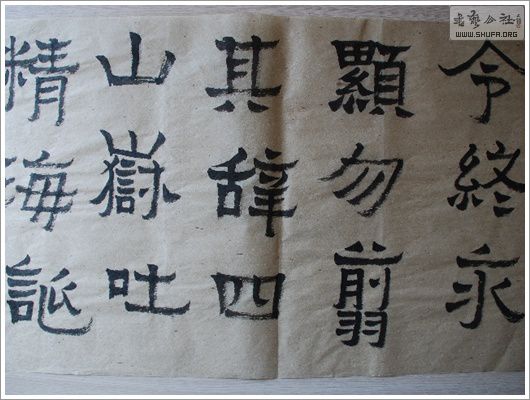 令終永
顯勿翦
其辞四
山嶽吐
精海誕
WWW.SHUFA.ORG